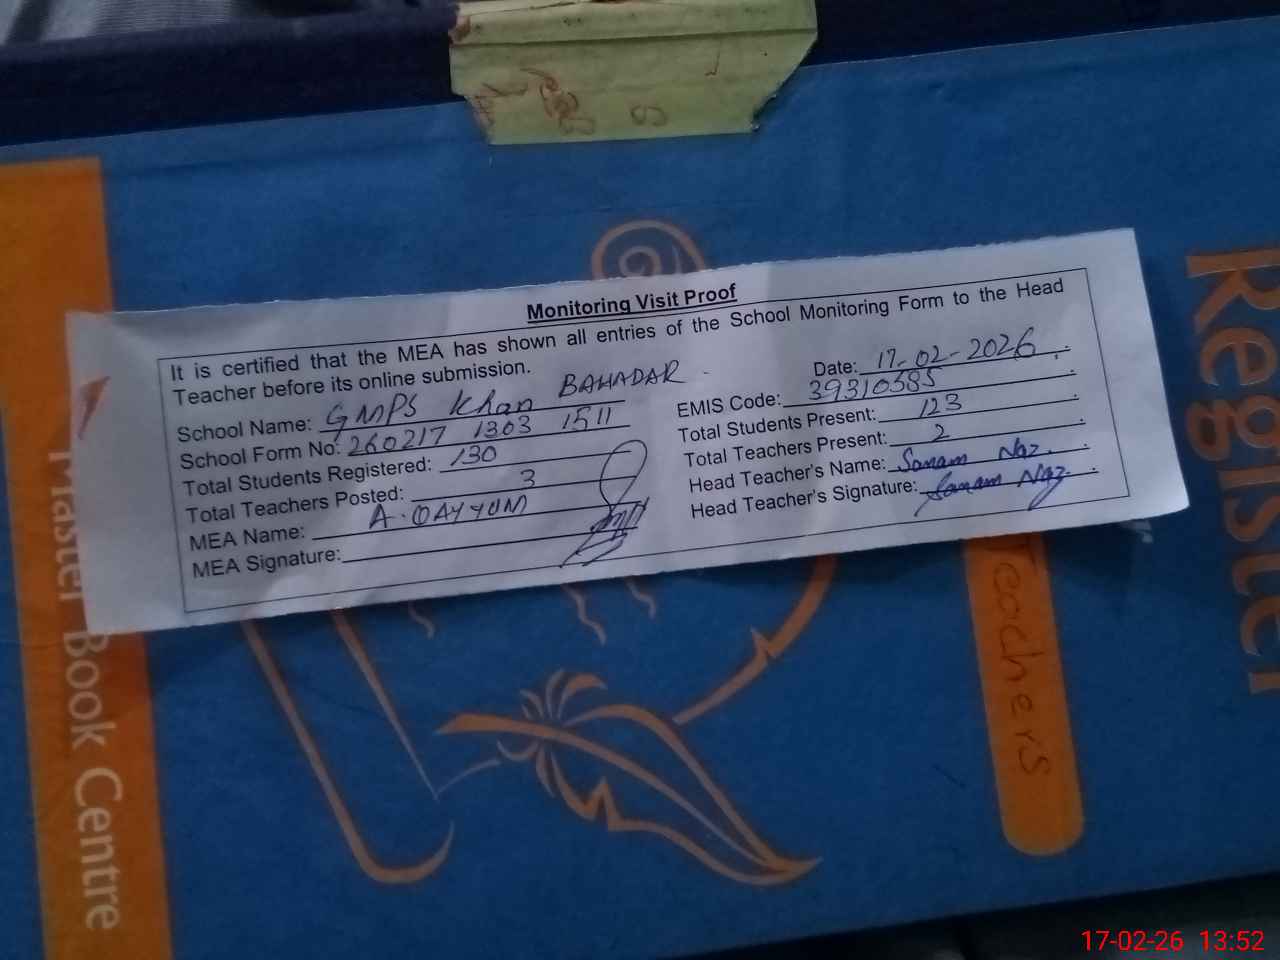 Monitoring Visit Proof
It is certified that the MEA has shown all entries of the School Monitoring Form to the Head
Teacher before its online submission.
Date: 17-02-2026
School Name: GMPS Khan BAHADAR
EMIS Code: 39310585
School Form No: 260217 1303 1511
Total Students Present: 123
Total Students Registered: 130
Total Teachers Present: 2
Total Teachers Posted: 3
Head Teacher's Name: Sanam Naz.
MEA Name: A.QAYYUM
Head Teacher's Signature: Sanam Naz
MEA Signature:
Master Book Centre
Register
Teachers
17-02-26 13:52